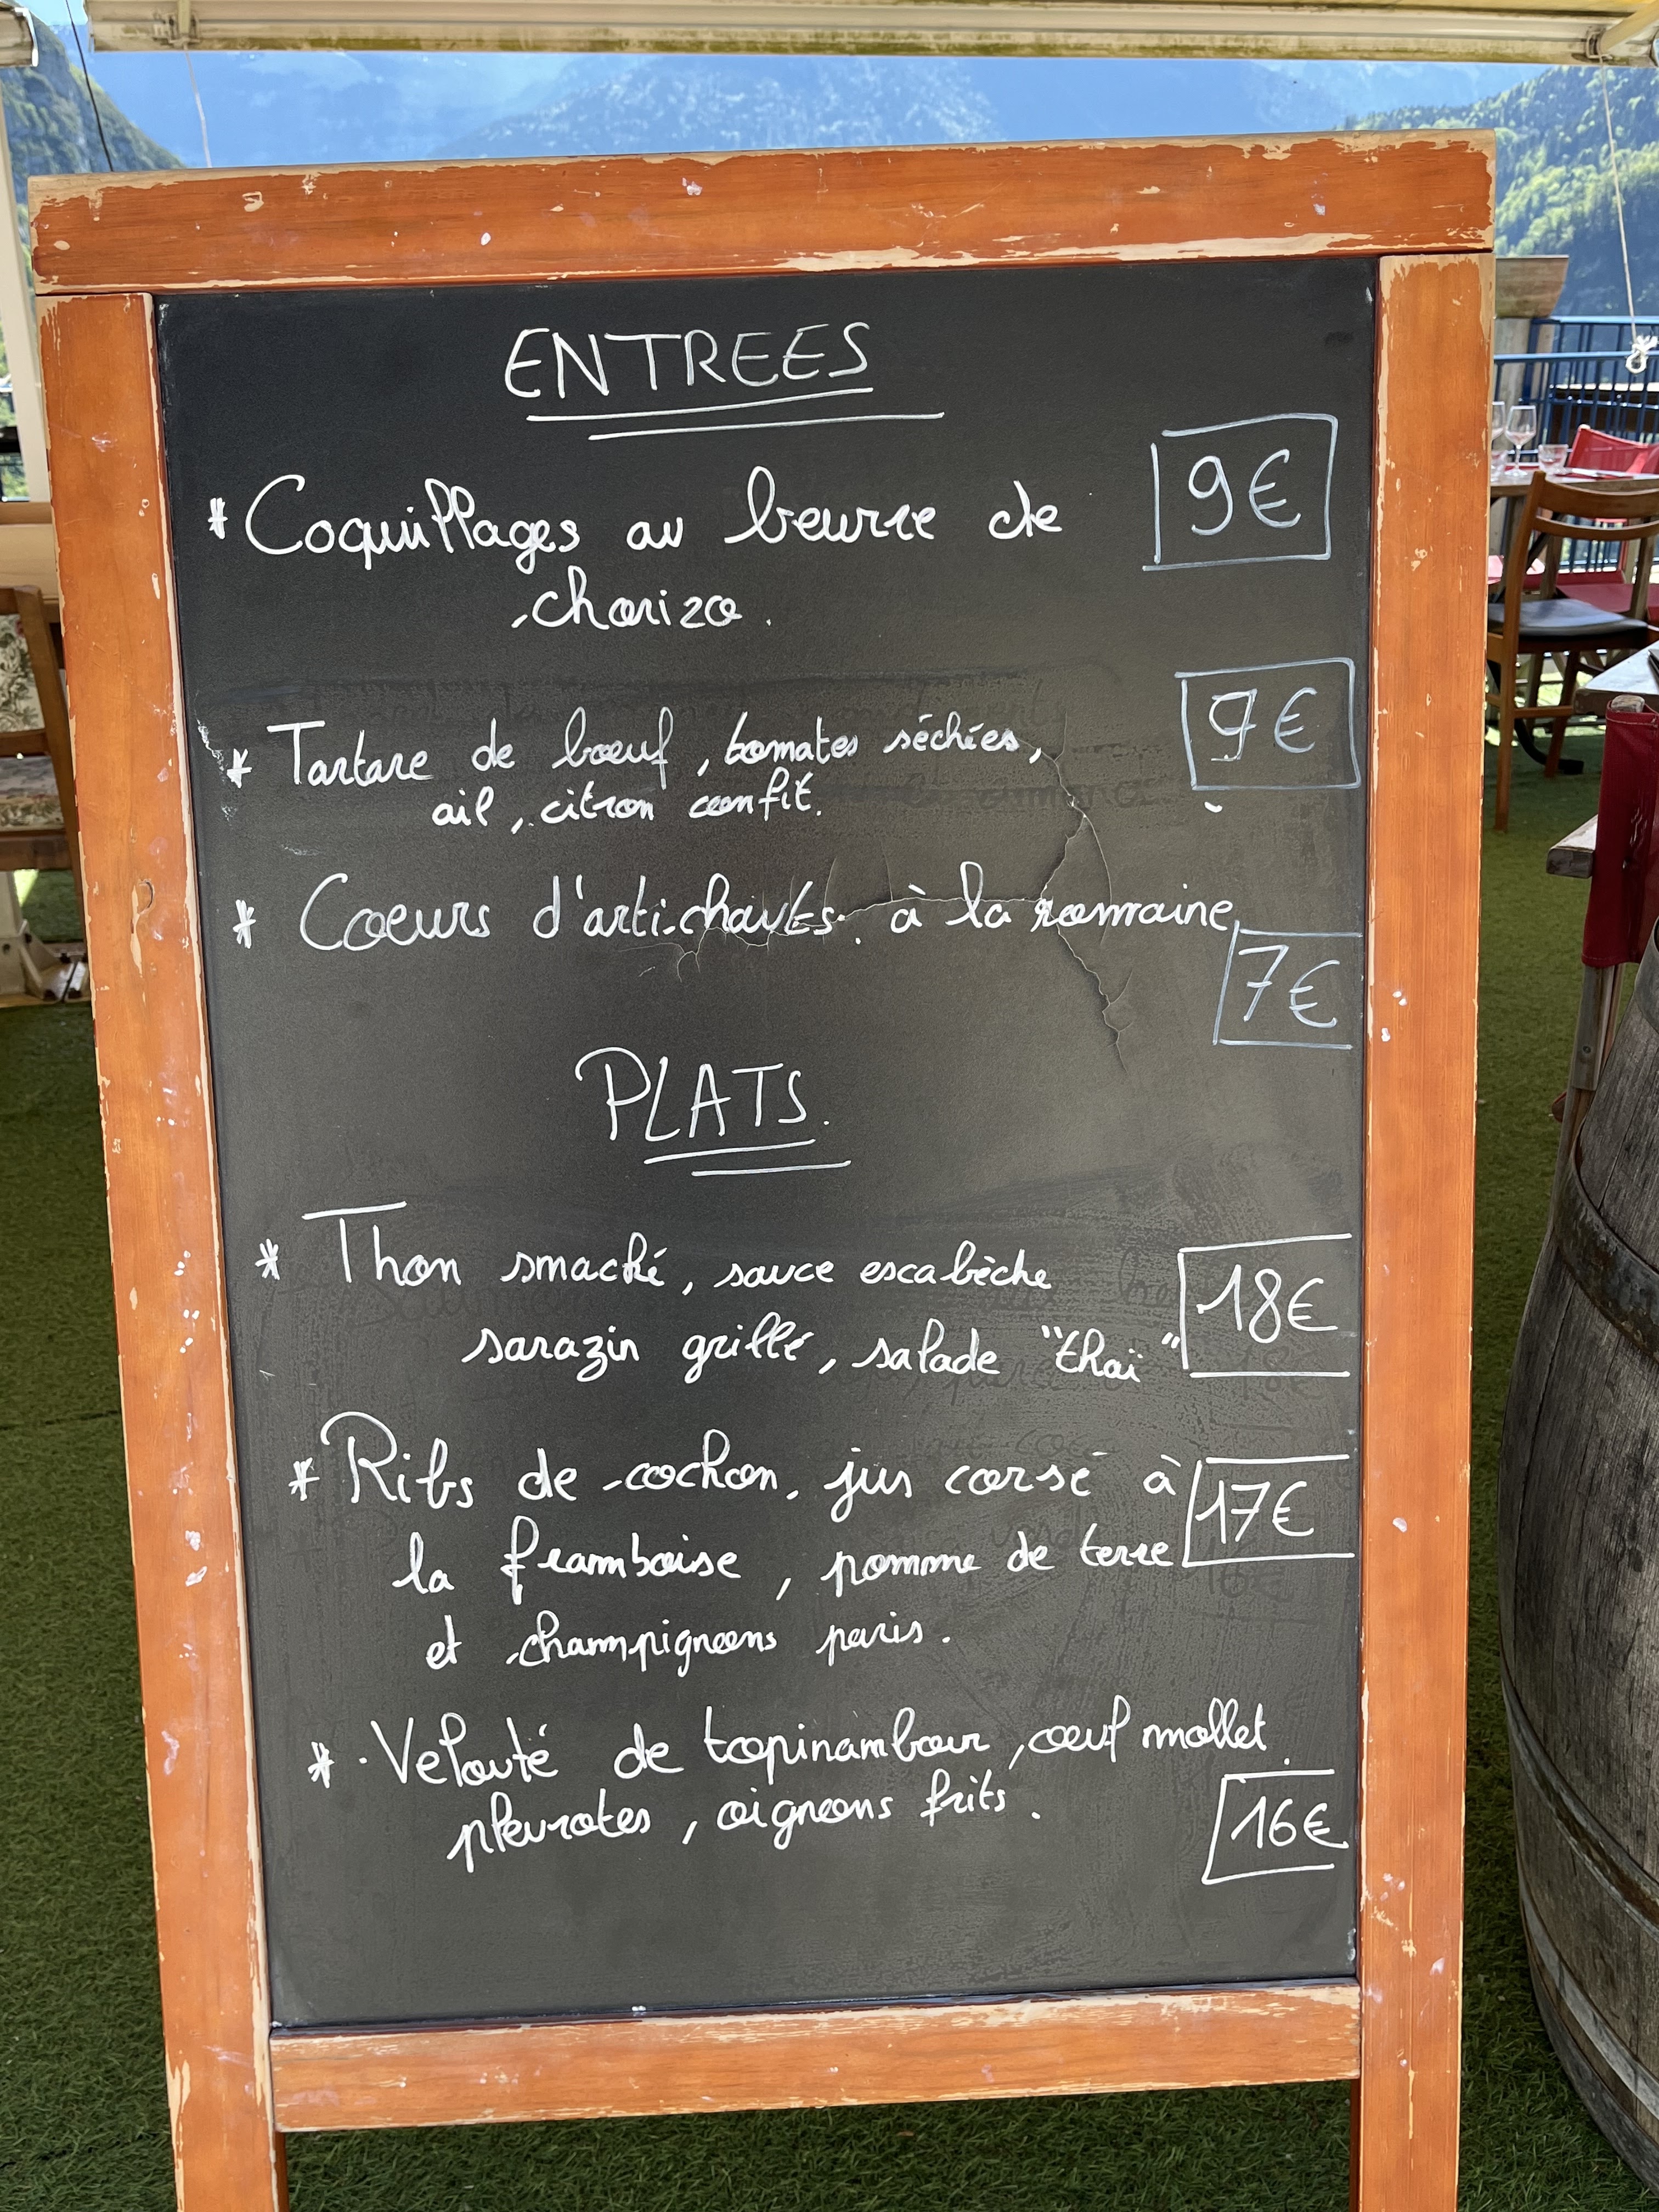 ENTREES
* Coquillages au beurre de
9€
chorizo.
* Tartare de bœuf, tomates séchées,
9€
ail, citron confit.
* Coeurs d'artichauts à la romaine
7€
PLATS.
* Thon smacké, sauce escabèche
18€
sarazin grillé, salade "thaï"
* Ribs de cochon, jus corsé à
17€
la framboise, pomme de terre
et champignons paris.
* Velouté de topinambour, œuf mollet.
pleurotes, oignons frits.
16€